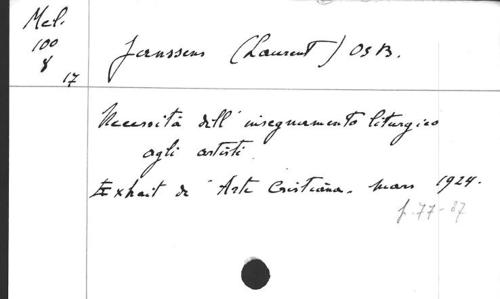 Mel.
100
8
17
Janssens (Laurent) OSB.
Necessità dell'insegnamento liturgico
agli artisti.
Extrait de "Arte Cristiana. mars 1924.
p. 77-87